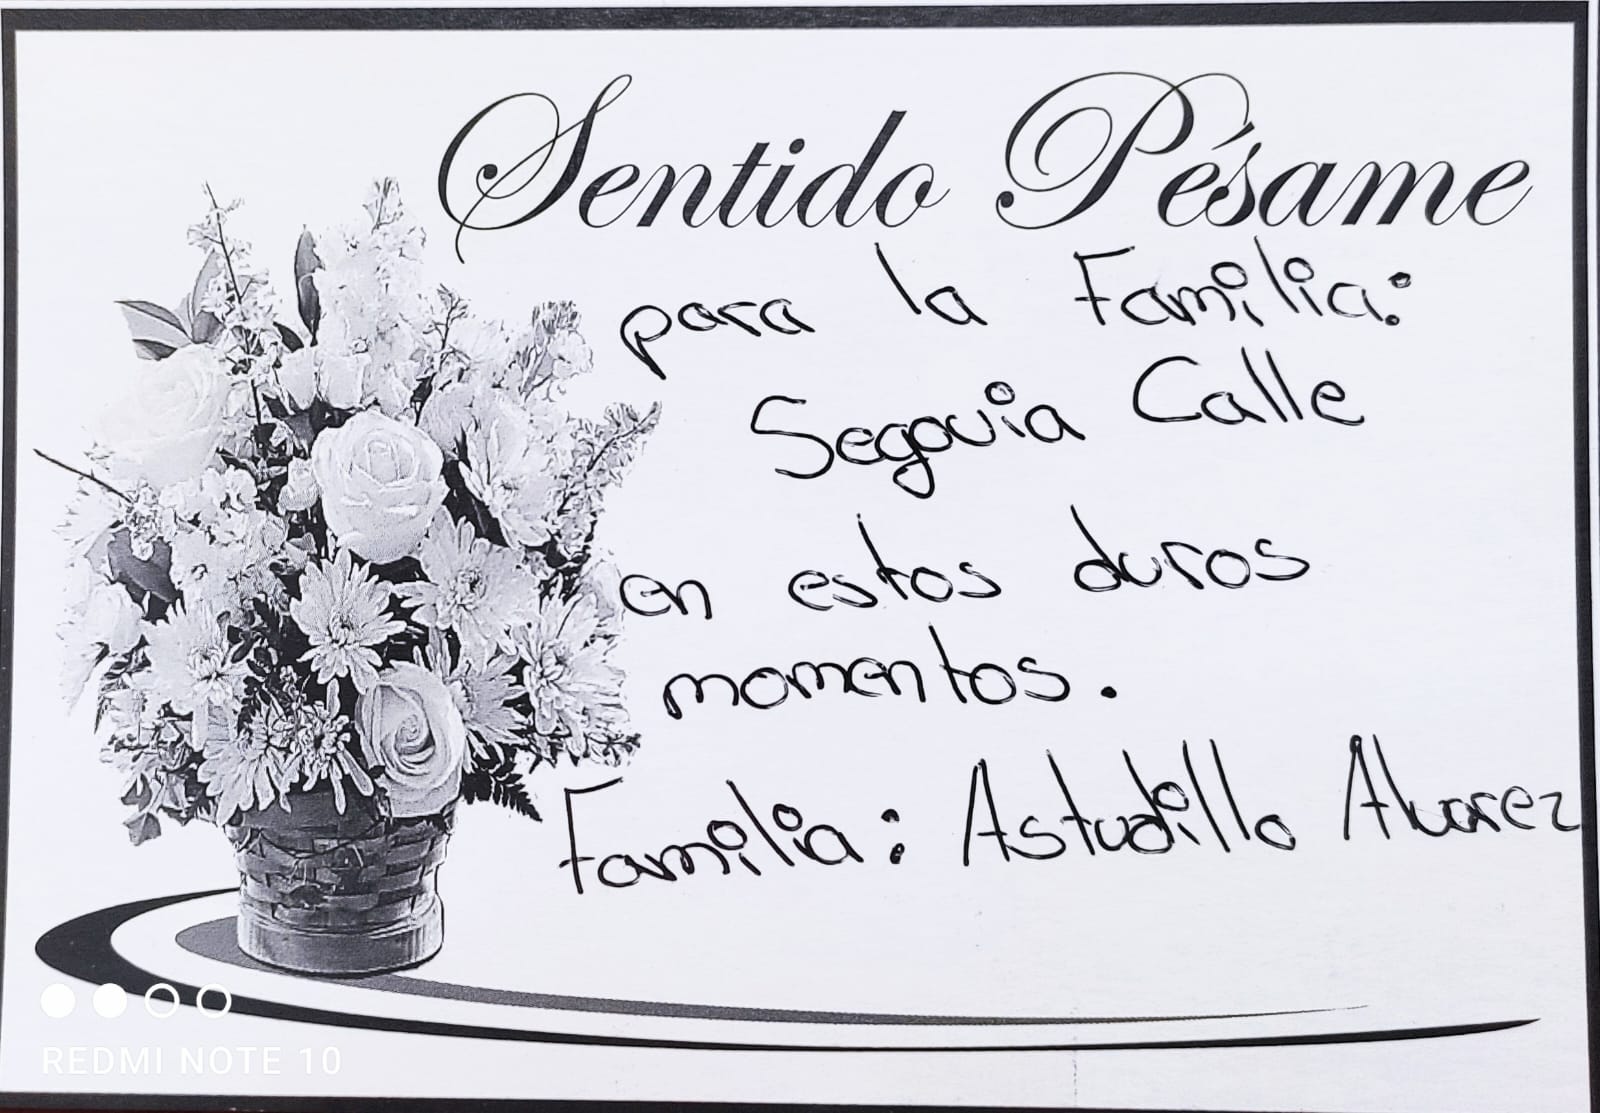 Sentido Pésame
para la Familia:
Segovia Calle
en estos duros
momentos.
Familia: Astudillo Alvarez
REDMI NOTE 10